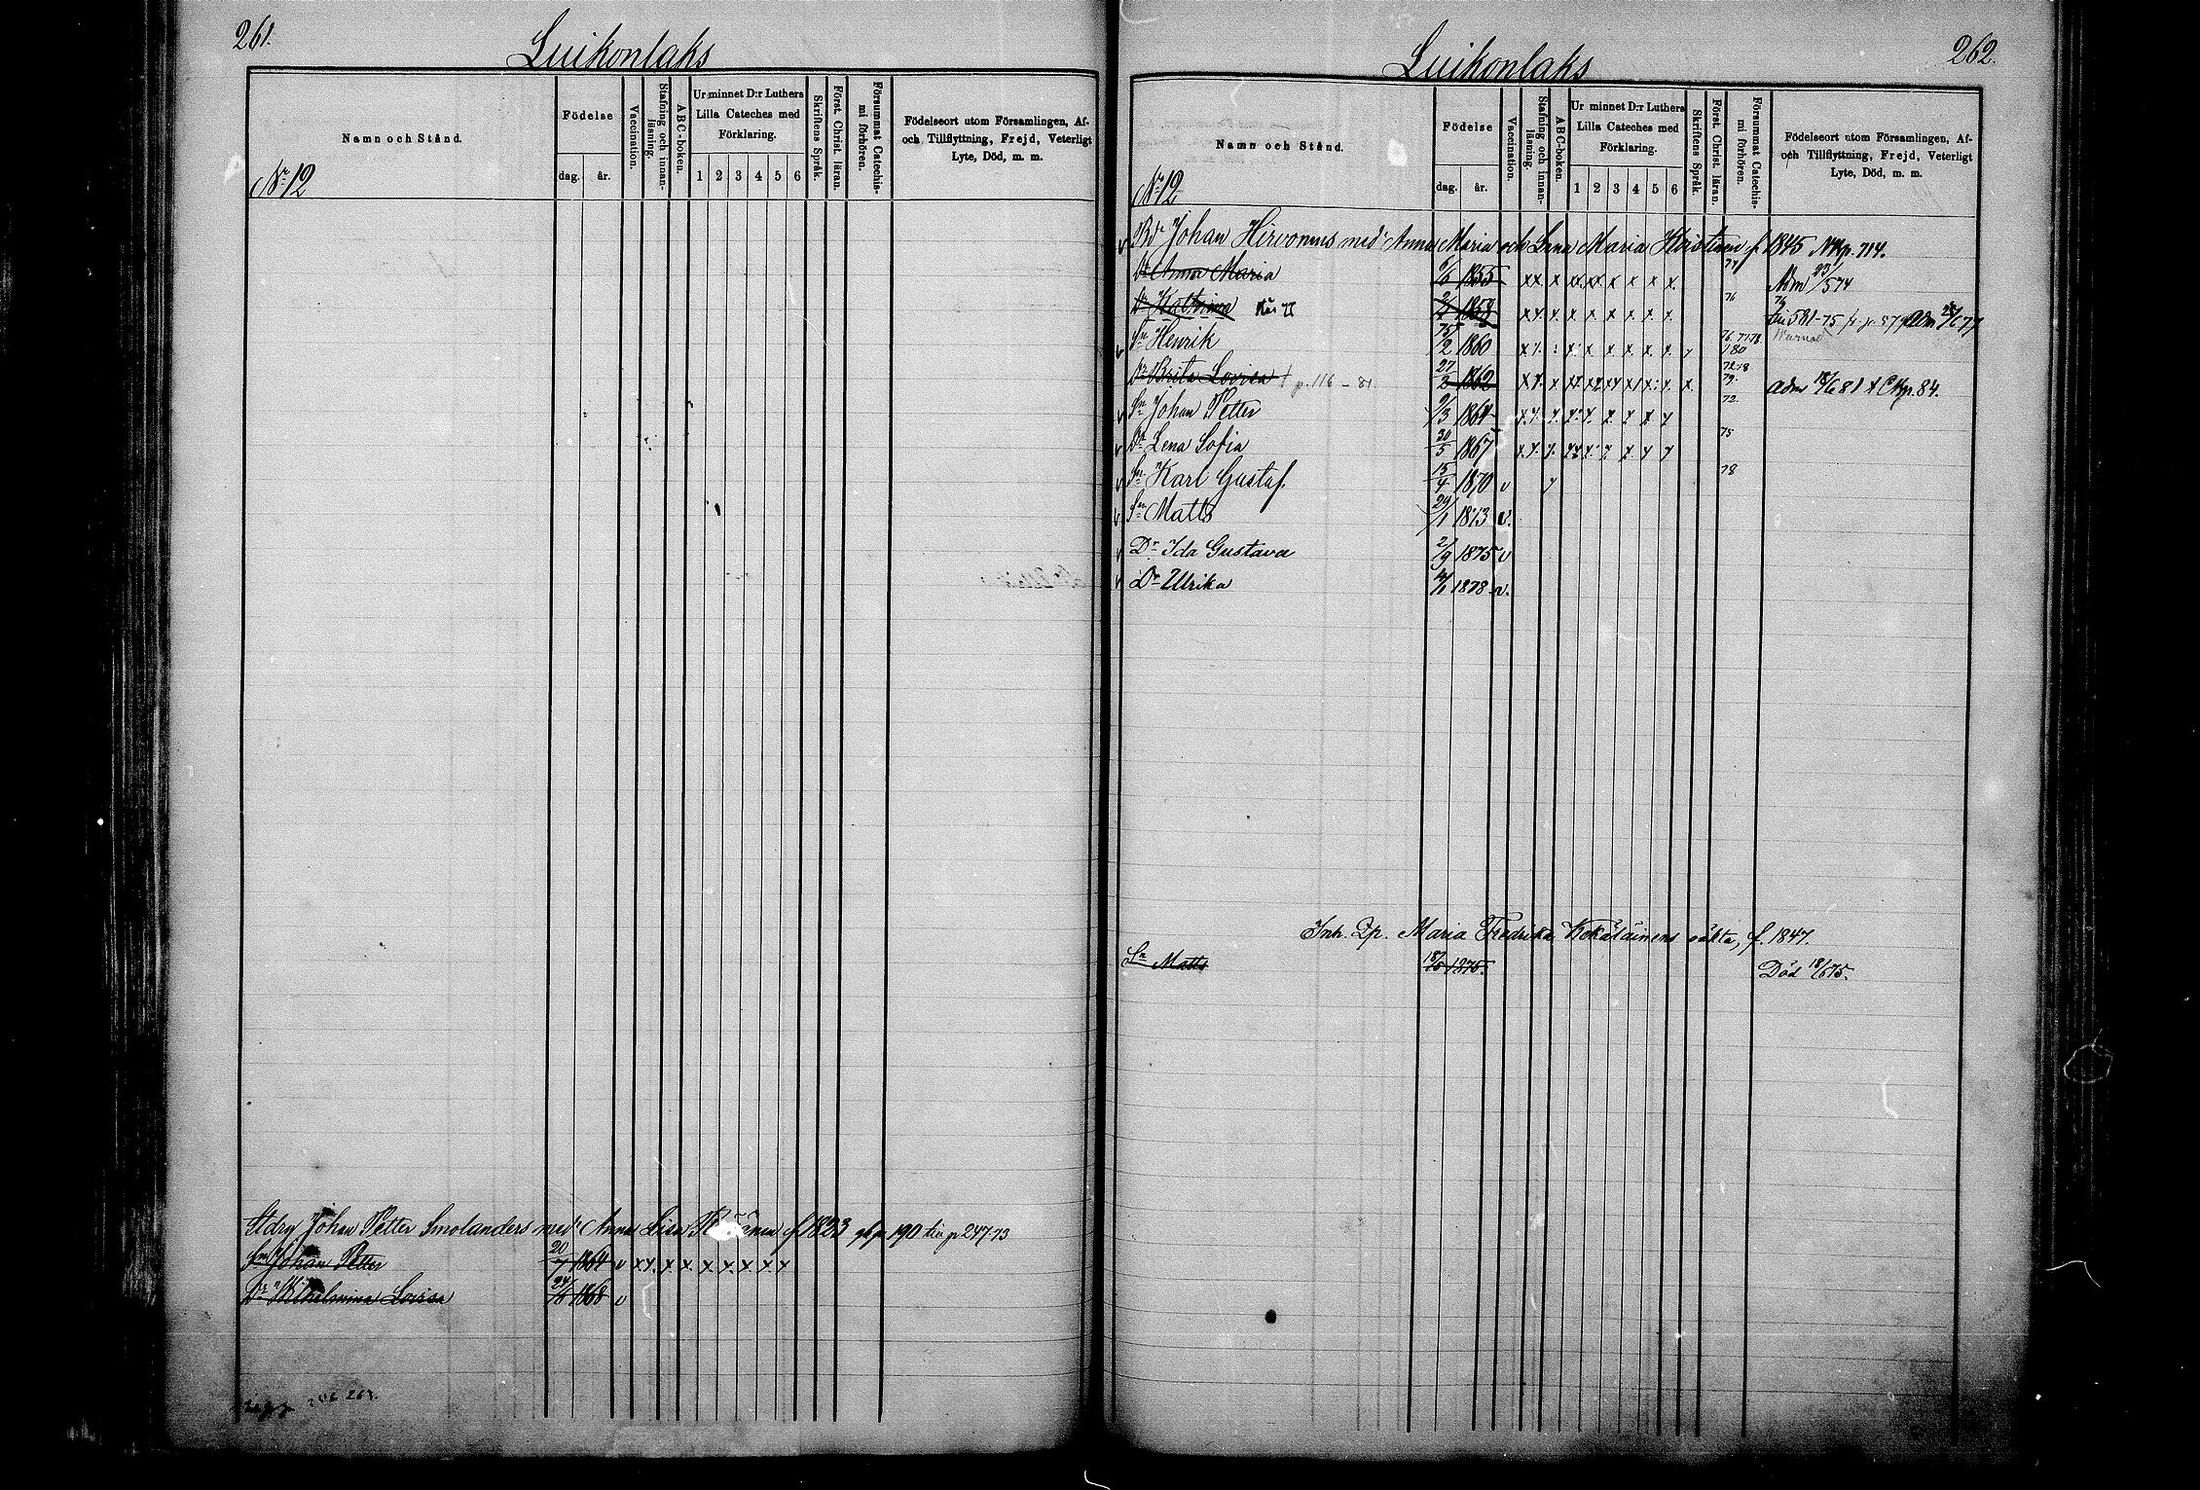 261.
Luikonlaks
Namn och Stånd.
Födelse
dag. år.
Vaccination.
Stafning och innanläsning.
ABC-boken.
Ur minnet D:r Luthers
Lilla Cateches med
Förklaring.
1 2 3 4 5 6
Skriftens Språk.
Först. Christ. läran.
Försummat Catechismi förhören.
Födelseort utom Församlingen, Af-
och Tillflyttning, Frejd, Veterligt
Lyte, Död, m. m.
No 12
Johan Petter Smolanders med Anna Lisa f 1823 p 190 p 247-73
Sn Johan Petter 20/7 1864 v x x x x x x x x x
Dr Wilhelmina Lovisa 24/ 1868 v
262.
Luikonlaks
Namn och Stånd.
Födelse
dag. år.
Vaccination.
Stafning och innanläsning.
ABC-boken.
Ur minnet D:r Luthers
Lilla Cateches med
Förklaring.
1 2 3 4 5 6
Skriftens Språk.
Först. Christ. läran.
Försummat Catechismi förhören.
Födelseort utom Församlingen, Af-
och Tillflyttning, Frejd, Veterligt
Lyte, Död, m. m.
No 12
Johan Hirvonens med Anna Maria och Lena Maria f. 1845 p. 714.
Dr Anna Maria 6/6 1855 74
Dr Katrina 1858 76
Sn Henrik /2 1860 76. 77.78. /80
Dr Brita Lovisa † p. 116 - 81 27/2 1862 72.78 79. adm 18/6 81 p. 84.
Sn Johan Petter 9/3 1864 72
Dr Lena Sofia 20/5 1867 75
Sn Karl Gustaf. 15/4 1870 v 78
Sn Matts 29/1 1873 v.
Dr Ida Gustava 2/9 1875 v
Dr Ulrika /1 1878 v.
Inh. Maria Fredrika Kekäläinens oäkta, f. 1847.
Sn Matts 18/5 1875. Död 18/6 75.